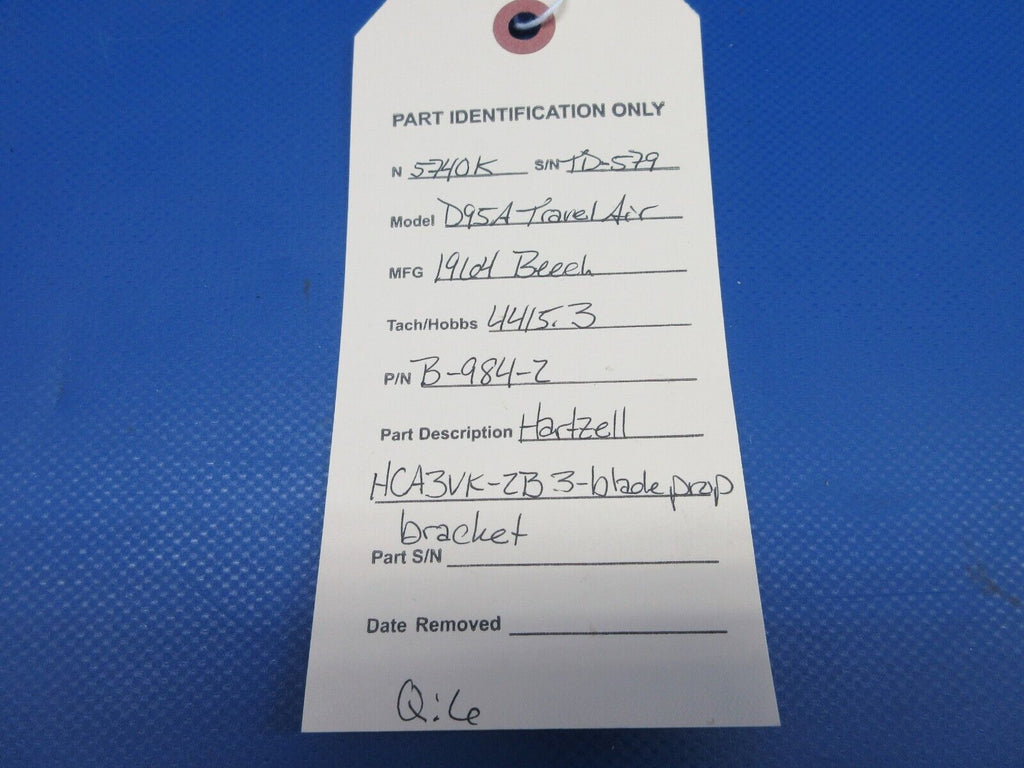 PART IDENTIFICATION ONLY
N 5740K S/N TD-579
Model D95A Travel Air
MFG 1964 Beech
Tach/Hobbs 4415.3
P/N B-984-2
Part Description Hartzell
HCA3VK-2B 3-blade prop
bracket
Part S/N
Date Removed
Q:6